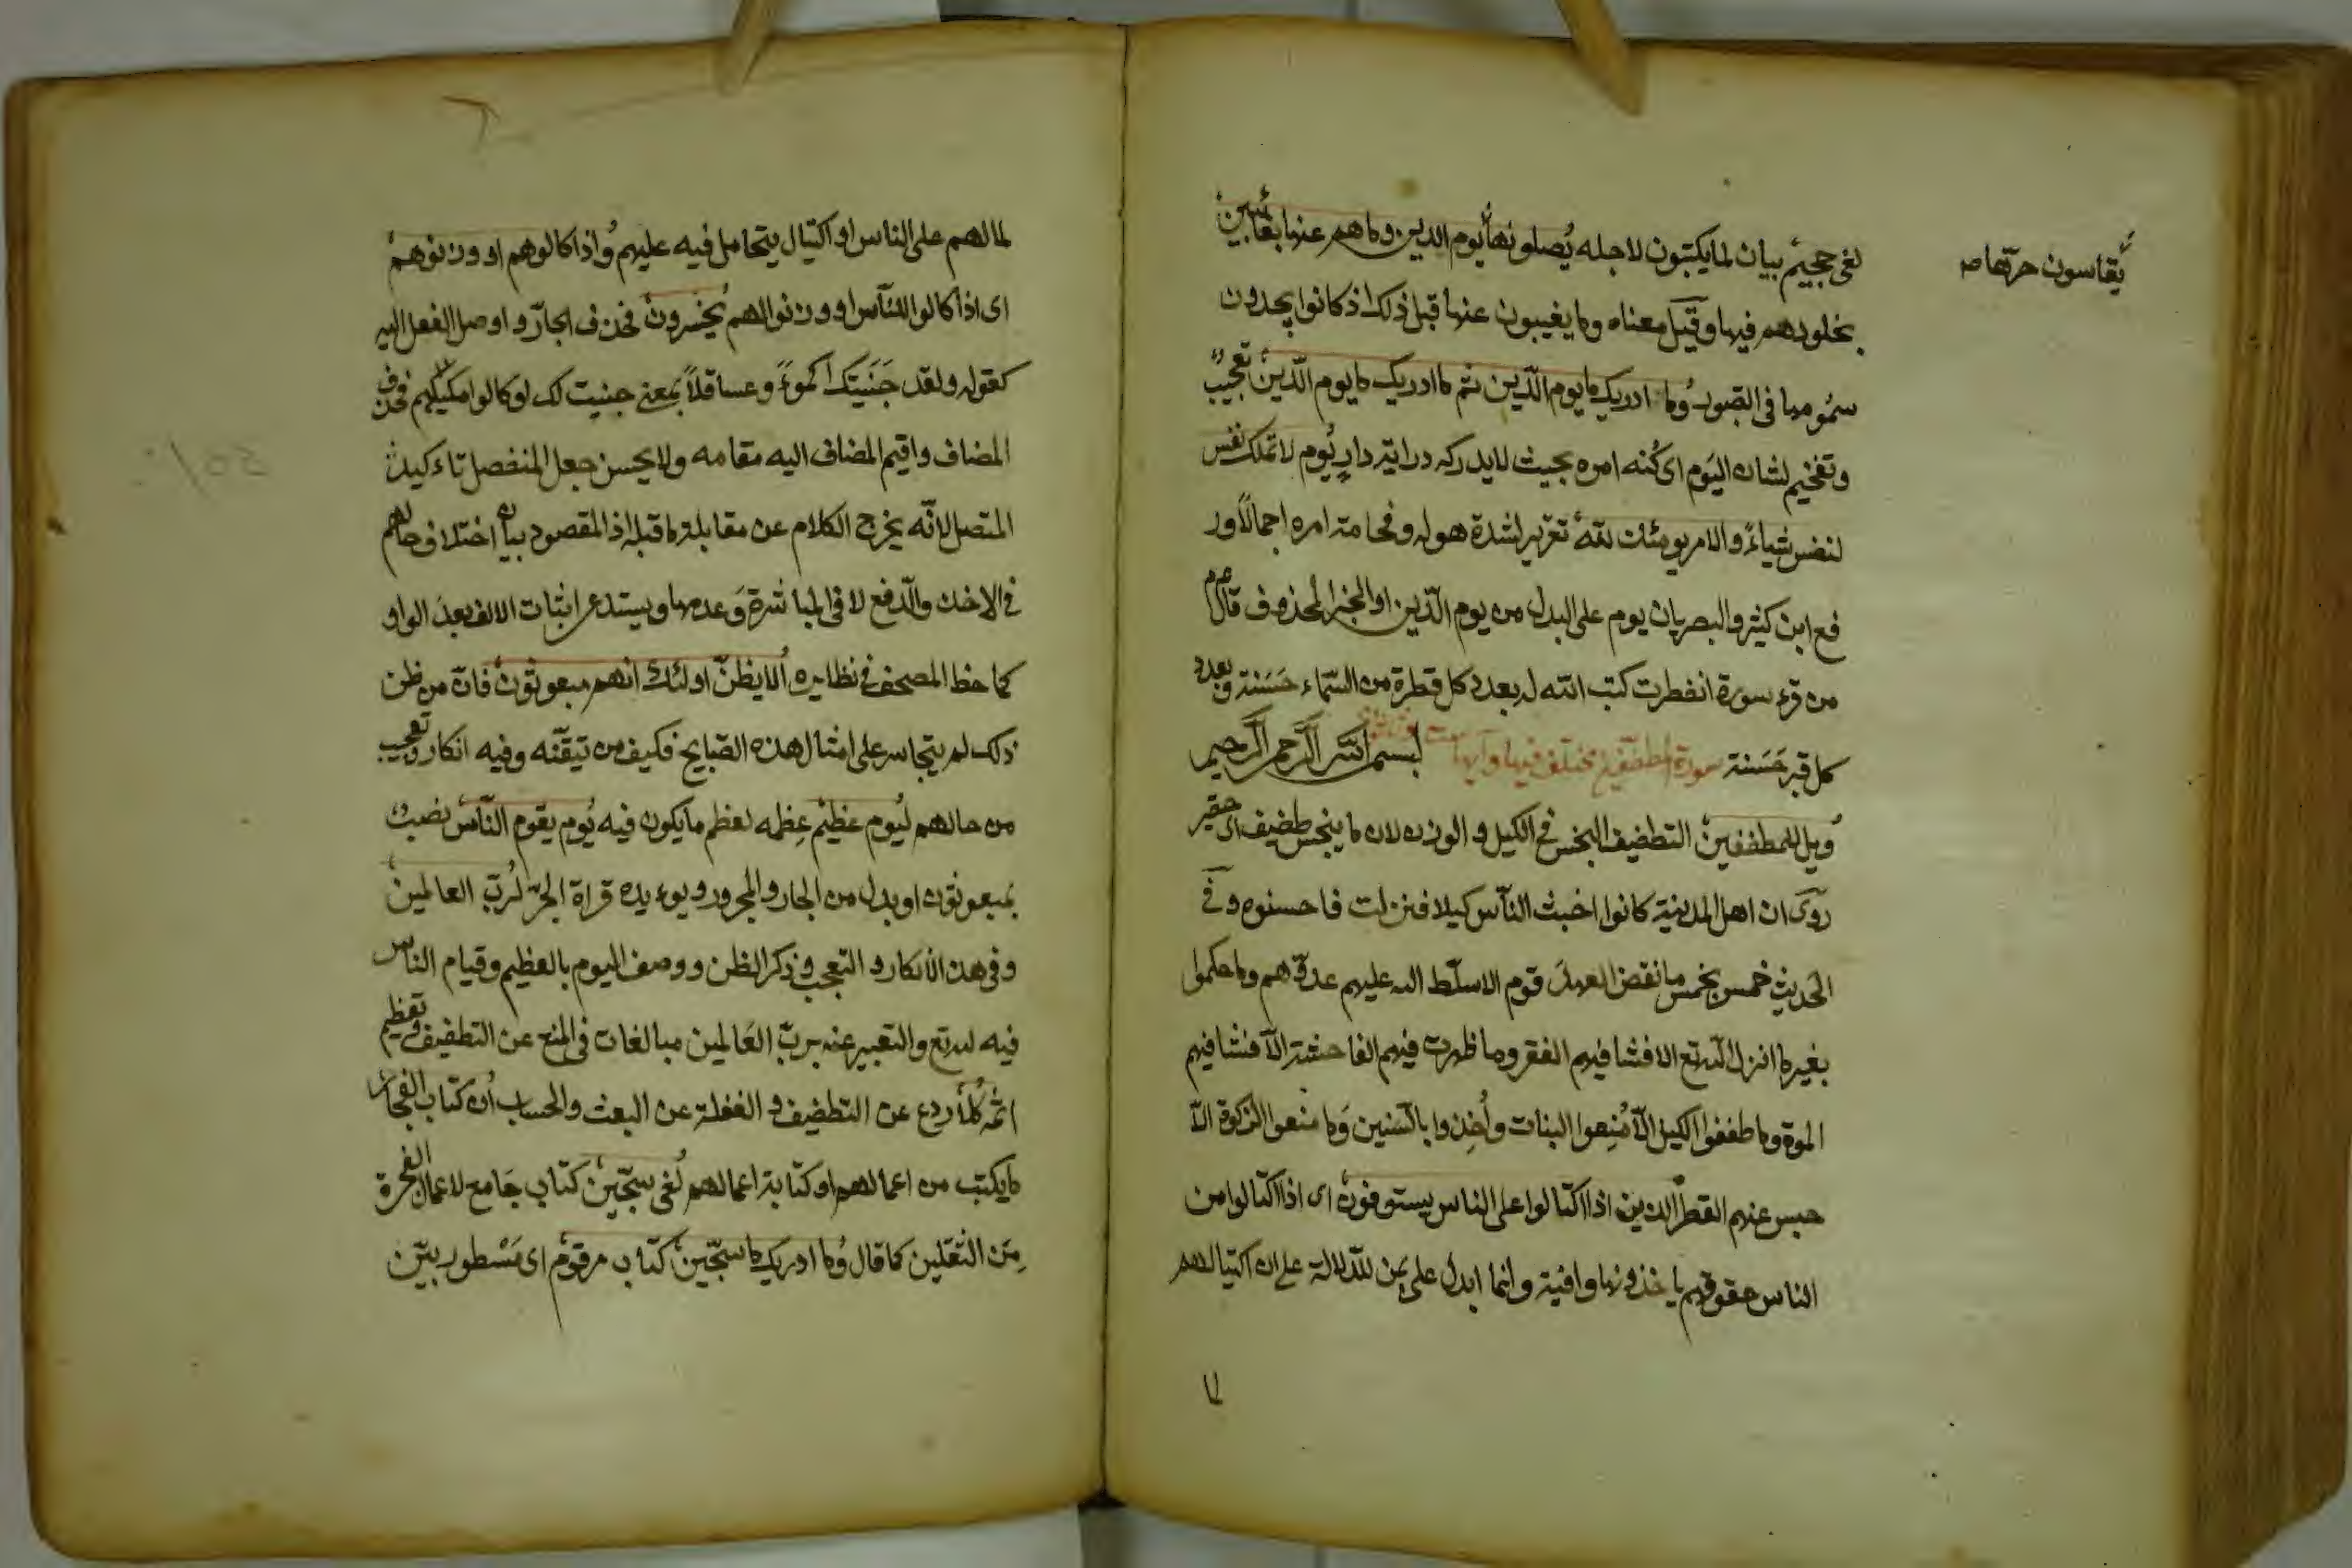 لفى جحيم بيان لما يكتبون لاجله يصلونها يوم الدين وما هم عنها بغائبين
يقاسون حرّها صح
بخلودهم فيها وقيل معناه وما يغيبون عنها قبل ذلك اذ كانوا يجدون
سمومها فى القبور وما ادريك ما يوم الدّين ثم ما ادريك ما يوم الدّين تعجيب
وتفخيم لشان اليوم اى كُنه امره بحيث لا يدركه دراية دارٍ يوم لا تملك نفس
لنفس شياءً والامر يومئذ لله تقرير لشدة هوله وفخامة امره اجمالاً ور
فع ابن كثير والبصريان يوم على البدل من يوم الدّين او الخبر لمحذوف قال عم
من قرء سورة انفطرت كتب الله له بعدد كل قطرة من السّماء حَسَنة وبعدد
كل قبر حَسَنة سورة المطففين مختلف فيها وآيها ست وثلثون بسم الله الرحمن الرحيم
ويل للمطففين التطفيف البخس فى الكيل و الوزن لان ما يبخس طفيف اى حقير
روى ان اهل المدينة كانوا اخبث النّاس كيلا فنزلت فاحسنوه وفى
الحديث خمس بخمس ما نقض العهدَ قوم الا سلّط الله عليهم عدوّهم وما حكموا
بغير ما انزل الله تع الا فشا فيهم الفقر وما ظهرت فيهم الفاحشة الّا فشا فيهم
الموت وما طففوا الكيل الّا مُنِعوا النبات وأُخِذوا بالسّنين وَما منعوا الزكوة الّا
حبس عنهم القطر الذين اذا اكتالوا على الناس يستوفون اى اذا اكتالوا من
الناس حقوقهم ياخذونها وافية وانما ابدل على بمن للدّلالة على ان اكتيالهم
لما
لما لهم على الناس او اكتيال يتحامل فيه عليهم واذا كالوهم او وزنوهم
اى اذا كالوا للنّاس او وزنوا لهم يخسرون فحذف الجارّ و اوصل الفعل اليه
كقوله ولقد جَنَيتك اكموءً وعساقلاً بمعنى جنيت لك او كالوا مكيلهم فحذف
المضاف واقيم المضاف اليه مقامه ولا يحسن جعل المنفصل تاءكيد
المتصل لانّه يخرج الكلام عن مقابلة ما قبله اذ المقصود بيان اختلاف حالهم
فى الاخذ والدّفع لا فى المباشرة وَعدمها ويستدعى اثبات الالف بعدَ الواو
كما خط المصحف فى نظايره الا يظنّ اولئك انهم مبعوثون فانّ من ظن
ذلك لم يتجاسر على امثال هذه القبايح فكيف من تيقّنه وفيه انكار وتعجيب
من حالهم ليوم عظيم عِظمه لعظم ما يكون فيه يوم يقوم النّاس نصب
بمبعوثون او بدل من الجار و المجرور ويوءيده قراة الجرّ لربّ العالمين
وفى هذا الانكار و التعجب وذكر الظن ووصف اليوم بالعظيم وقيام الناس
فيه لله تع والتعبير عنه بربّ العَالمين مبالغات فى المنع عن التطفيف وتعظيم
اثمه كلّا ردع عن التطفيف و الغفلة عن البعث والحساب ان كتاب الفجار
ما يكتب من اعمالهم او كتابة اعمالهم لفى سجّين كتاب جَامع لاعمال الفجرة
مِن الثقلين كما قال وما ادريك ما سجّين كتاب مرقوم اى مَسْطور بيّن